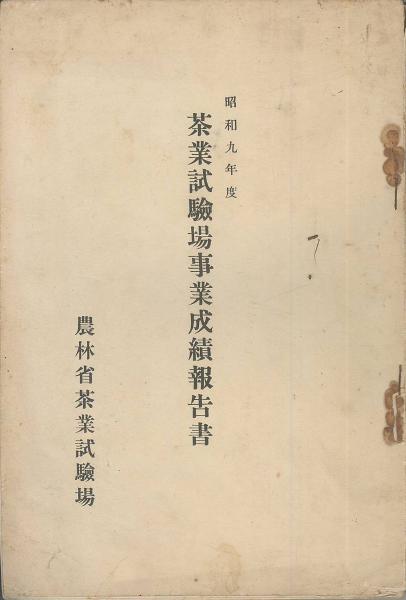 昭和九年度
茶業試驗場事業成績報告書
農林省茶業試驗場